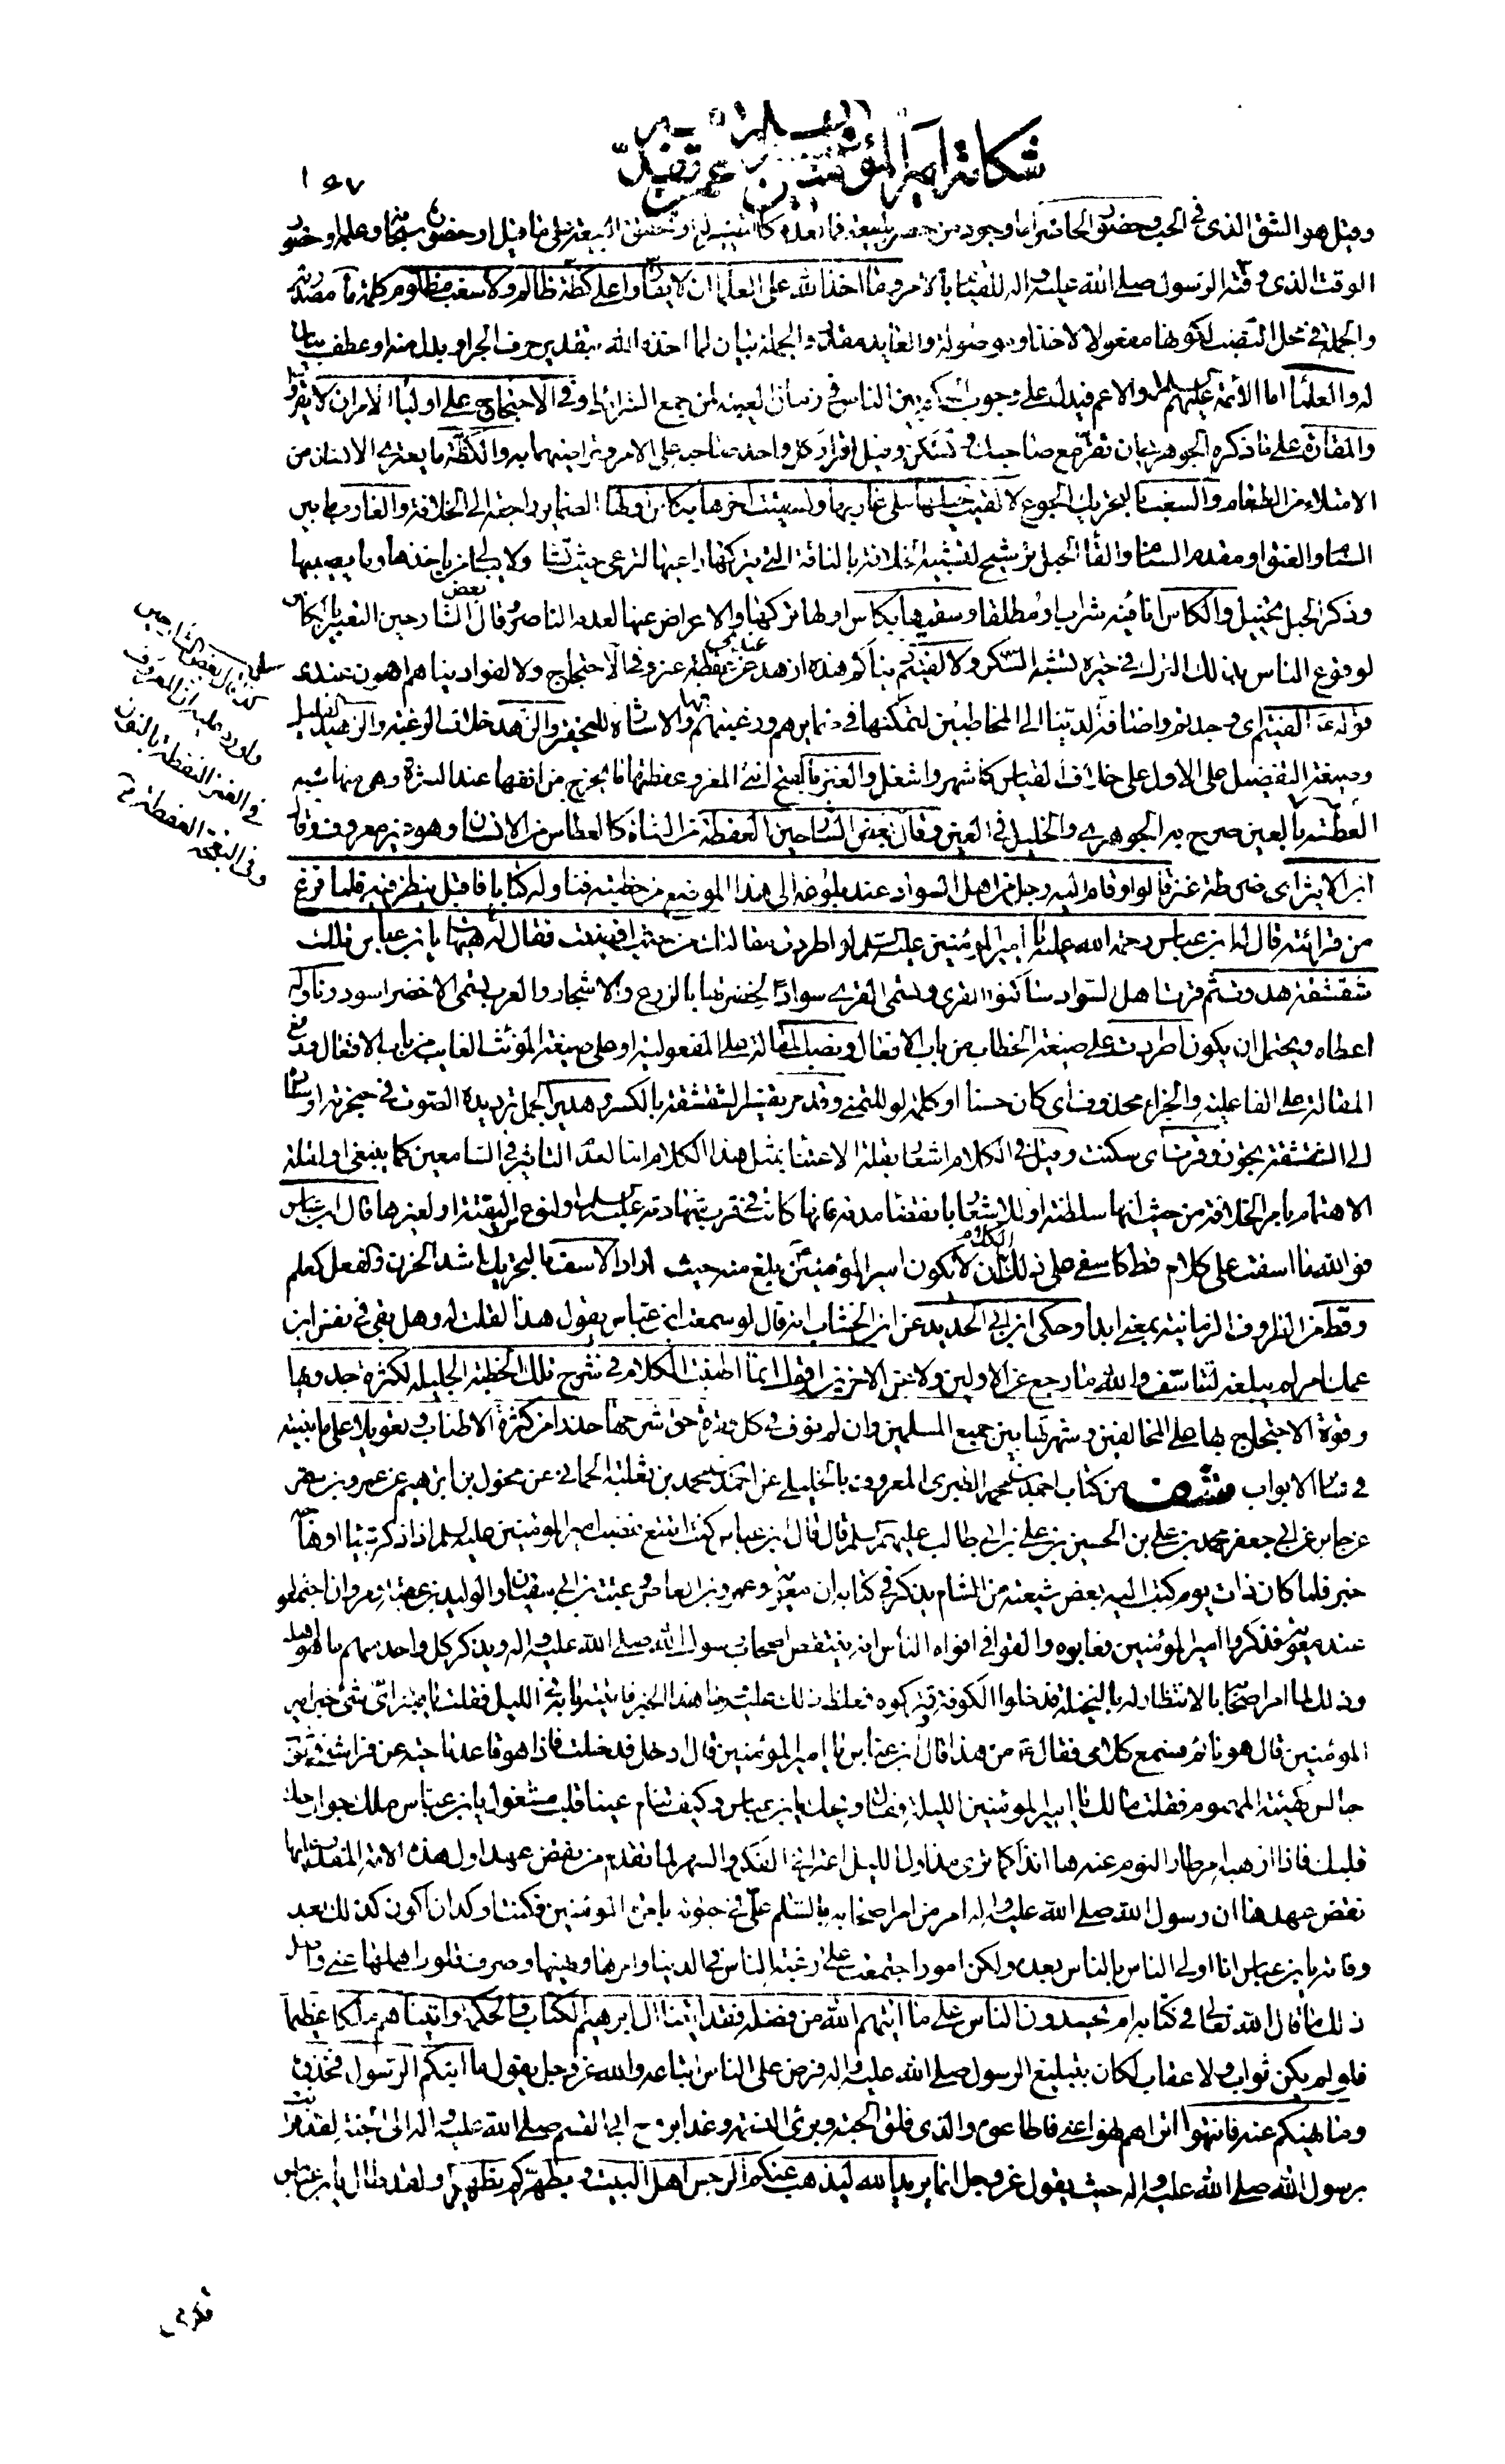 شكاية أمير المؤمنين عمن تقدمه
١٥٧
وقيل هو الشق الذي في الحب وحضور الحاضر اما وجود من حضر للبيعة فما بعده كالتفسير له او تحقق البيعة على ما قيل او حضوره سبحانه وعلمه او حضور
الوقت الذي وقته الرسول صلى الله عليه وآله للقيام بالامر وما اخذ الله على العلماء ان لا يقاروا على كظة ظالم ولا سغب مظلوم كلمة ما مصدرية
والجملة في محل النصب لكونها مفعولا لاخذ او موصولة والعايد مقدر والجملة بيان لما اخذه الله بتقدير حرف الجر او بدل منه او عطف بيان
له والعلماء اما الائمة عليهم السلام او الاعم فيدل على وجوب الحكم بين الناس في زمان الغيبة لمن جمع الشرائط وفي الاحتجاج على اولياء الامر ان لا يقروا
والمقارة على ما ذكره الجوهري ان تقر مع صاحبك وتسكن وقيل اقرار كل واحد صاحبه على الامر وتراضيهما به والكظة ما يعتري الانسان من
الامتلاء من الطعام والسغب بالتحريك الجوع لالقيت حبلها على غاربها ولسقيت آخرها بكاس اولها الضماير راجعة الى الخلافة والغارب ما بين
السنام والعنق او مقدم السنام والقاء الحبل ترشيح لتشبيه الخلافة بالناقة التي يتركها راعيها لترعى حيث تشاء ولا يبالي من ياخذها وما يصيبها
وذكر الحبل تخييل والكاس اناء فيه شراب او مطلقا وسقيها بكاس اولها تركها والاعراض عنها لعدم الناصر وقال بعض الشارحين التعبير بالكاس
لوقوع الناس بذلك الترك في حيرة تشبه السكر ولالفيتم دنياكم هذه ازهد عندي من عفطة عنز وفي الاحتجاج ولالفوا دنياهم اهون عندي
قوله ع الفيتم اي وجدتم واضافة الدنيا الى المخاطبين لتمكنها في ضمايرهم ورغبتهم فيها والاشارة للتحقير والزهد خلاف الرغبة والزهيد القليل
وصيغة التفضيل على الاول على خلاف القياس كاشهر واشغل والعنز بالفتح انثى المعز وعفطتها ما يخرج من انفها عند النثرة وهي منها شبه
العطسة بالعين صرح به الجوهري والخليل في العين وقال بعض الشارحين العفطة من الشاة كالعطاس من الانسان وهو غير معروف وقال
ابن الاثير اي ضرطة عنز قالوا وقام اليه رجل من اهل السواد عند بلوغه الى هذا الموضع من خطبته فناوله كتابا فاقبل ينظر فيه فلما فرغ
من قرائته قال له ابن عباس رحمة الله عليه يا امير المؤمنين عليه السلام لو اطردت مقالتك من حيث افضيت فقال له هيهات يا بن عباس تلك
شقشقة هدرت ثم قرت اهل السواد ساكنوا القرى وتسمى القرى سوادا لخضرتها بالزرع والاشجار والعرب تسمي الاخضر اسود وناوله
اعطاه ويحتمل ان يكون اطردت على صيغة الخطاب من باب الافعال ونصب المقالة على المفعولية او على صيغة المؤنث الغايب من باب الافتعال ورفع
المقالة على الفاعلية والجزاء محذوف اي كان حسنا او كلمة لو للتمني وقد مر تفسير الشقشقة بالكسر وهدير الجمل ترديده الصوت في حنجرته او اسناده
الى الشقشقة تجوز وقرت اي سكنت وقيل في الكلام اشعار بقلة الاعتناء بمثل هذا الكلام اما لعدم التاثير في السامعين كما ينبغي او لقلة
الاهتمام بامر الخلافة من حيث انها سلطنة او للاشعار بانقضاء مدته فانها كانت في قرب شهادته عليه السلام او لنوع من التقية او لغيرها قال ابن عباس
فوالله ما اسفت على كلام قط كاسفي على ذلك الكلام ان لا يكون امير المؤمنين ع بلغ منه حيث اراد الاسف بالتحريك اشد الحزن والفعل كعلم
وقط من الظروف الزمانية بمعنى ابدا وحكى ابن ابي الحديد عن ابن الخشاب انه قال لو سمعت ابن عباس يقول هذا لقلت له وهل بقي في نفس ابن
عمك امر لم يبلغه لتتاسف والله ما رجع عن الاولين ولا عن الاخرين اقول انما اطنبت الكلام في شرح تلك الخطبة الجليلة لكثرة جدواها
وقوة الاحتجاج بها على المخالفين وشهرتها بين جميع المسلمين وان لم نوف في كل فقرة حق شرحها حذرا من كثرة الاطناب وتعويلا على ما بينته
في سائر الابواب شف من كتاب احمد بن محمد الطبري المعروف بالخليلي عن احمد بن محمد بن ثعلبة الحماني عن مخول بن ابرهيم عن عمرو بن شمر
عن جابر عن ابي جعفر محمد بن علي بن الحسين بن علي بن ابي طالب عليهم السلم قال قال ابن عباس كنت اتتبع غضب امير المؤمنين عليه السلم اذا ذكر شيئا او هاجه
خبر فلما كان ذات يوم كتب اليه بعض شيعته من الشام يذكر في كتابه ان معوية وعمرو بن العاص وعتبة بن ابي سفيان والوليد بن عقبة ومروان اجتمعوا
عند معوية فذكروا امير المؤمنين فعابوه والقوا في افواه الناس انه ينتقص اصحاب رسول الله صلى الله عليه واله ويذكر كل واحد منهم ما هو اهله
وذلك لما امر اصحابه بالانتظار له بالنخيلة فدخلوا الكوفة وتركوه فغلظ ذلك عليه وجاء هذا الخبر فاتيت بابه في الليل فقلت يا قنبر اي شئ خبر امير
المؤمنين قال هو نائم فسمع كلامي فقال ع من هذا قال ابن عباس يا امير المؤمنين قال ادخل فدخلت فاذا هو قاعد ناحية عن فراشه في ثوب
جالس كهيئة المهموم فقلت ما لك يا امير المؤمنين الليلة فقال ويحك يا بن عباس وكيف تنام عينا قلب مشغول يا بن عباس ملك جوارحك
قلبك فاذا ارهبه امر طار النوم عنه ها انا ذا كما ترى مذ اول الليل اعتراني الفكر والسهر لما تقدم من نقض عهد اول هذه الامة المقدر عليها
نقض عهدها ان رسول الله صلى الله عليه واله امر من امر اصحابه بالسلم علي في حيوته بامرة المؤمنين فكنت اوكد ان اكون كذلك بعد
وفاته يا بن عباس انا اولى الناس بالناس بعده ولكن امور اجتمعت على رغبة الناس في الدنيا وامرها ونهيها وصرف قلوب اهلها عني واصل
ذلك ما قال الله تعالى في كتابه ام يحسدون الناس على ما اتيهم الله من فضله فقد اتينا ال ابرهيم الكتاب والحكمة واتيناهم ملكا عظيما
فلو لم يكن ثواب ولا عقاب لكان بتبليغ الرسول صلى الله عليه واله فرض على الناس اتباعه والله عز وجل يقول ما اتيكم الرسول فخذوه
وما نهيكم عنه فانتهوا اتراهم نهوا عني فاطاعوه والذي فلق الحبة وبرئ النسمة وغدا بروح ابي القسم صلى الله عليه واله الى الجنة لقد قرنت
برسول الله صلى الله عليه واله حيث يقول عز وجل انما يريد الله ليذهب عنكم الرجس اهل البيت ويطهركم تطهيرا ولقد طال يا بن عباس
كذا قال بعض الشارحين
واورد عليه ان المعروف
في العنز النفطة بالنون
وفي النعجة العفطة
فكري